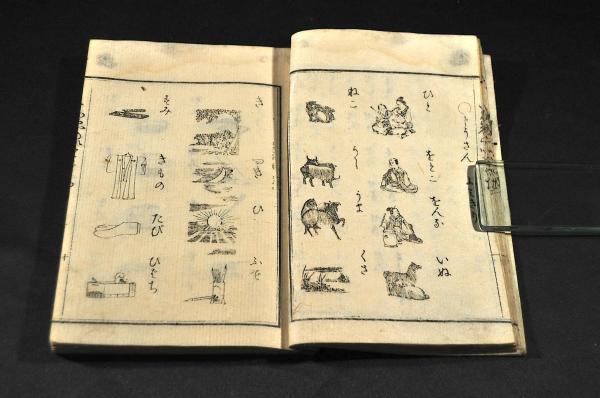 ひと
をとこ
をんな
いぬ
ねこ
うし
うま
くさ
き
つき
ひ
ふで
すみ
きもの
たび
ひばち